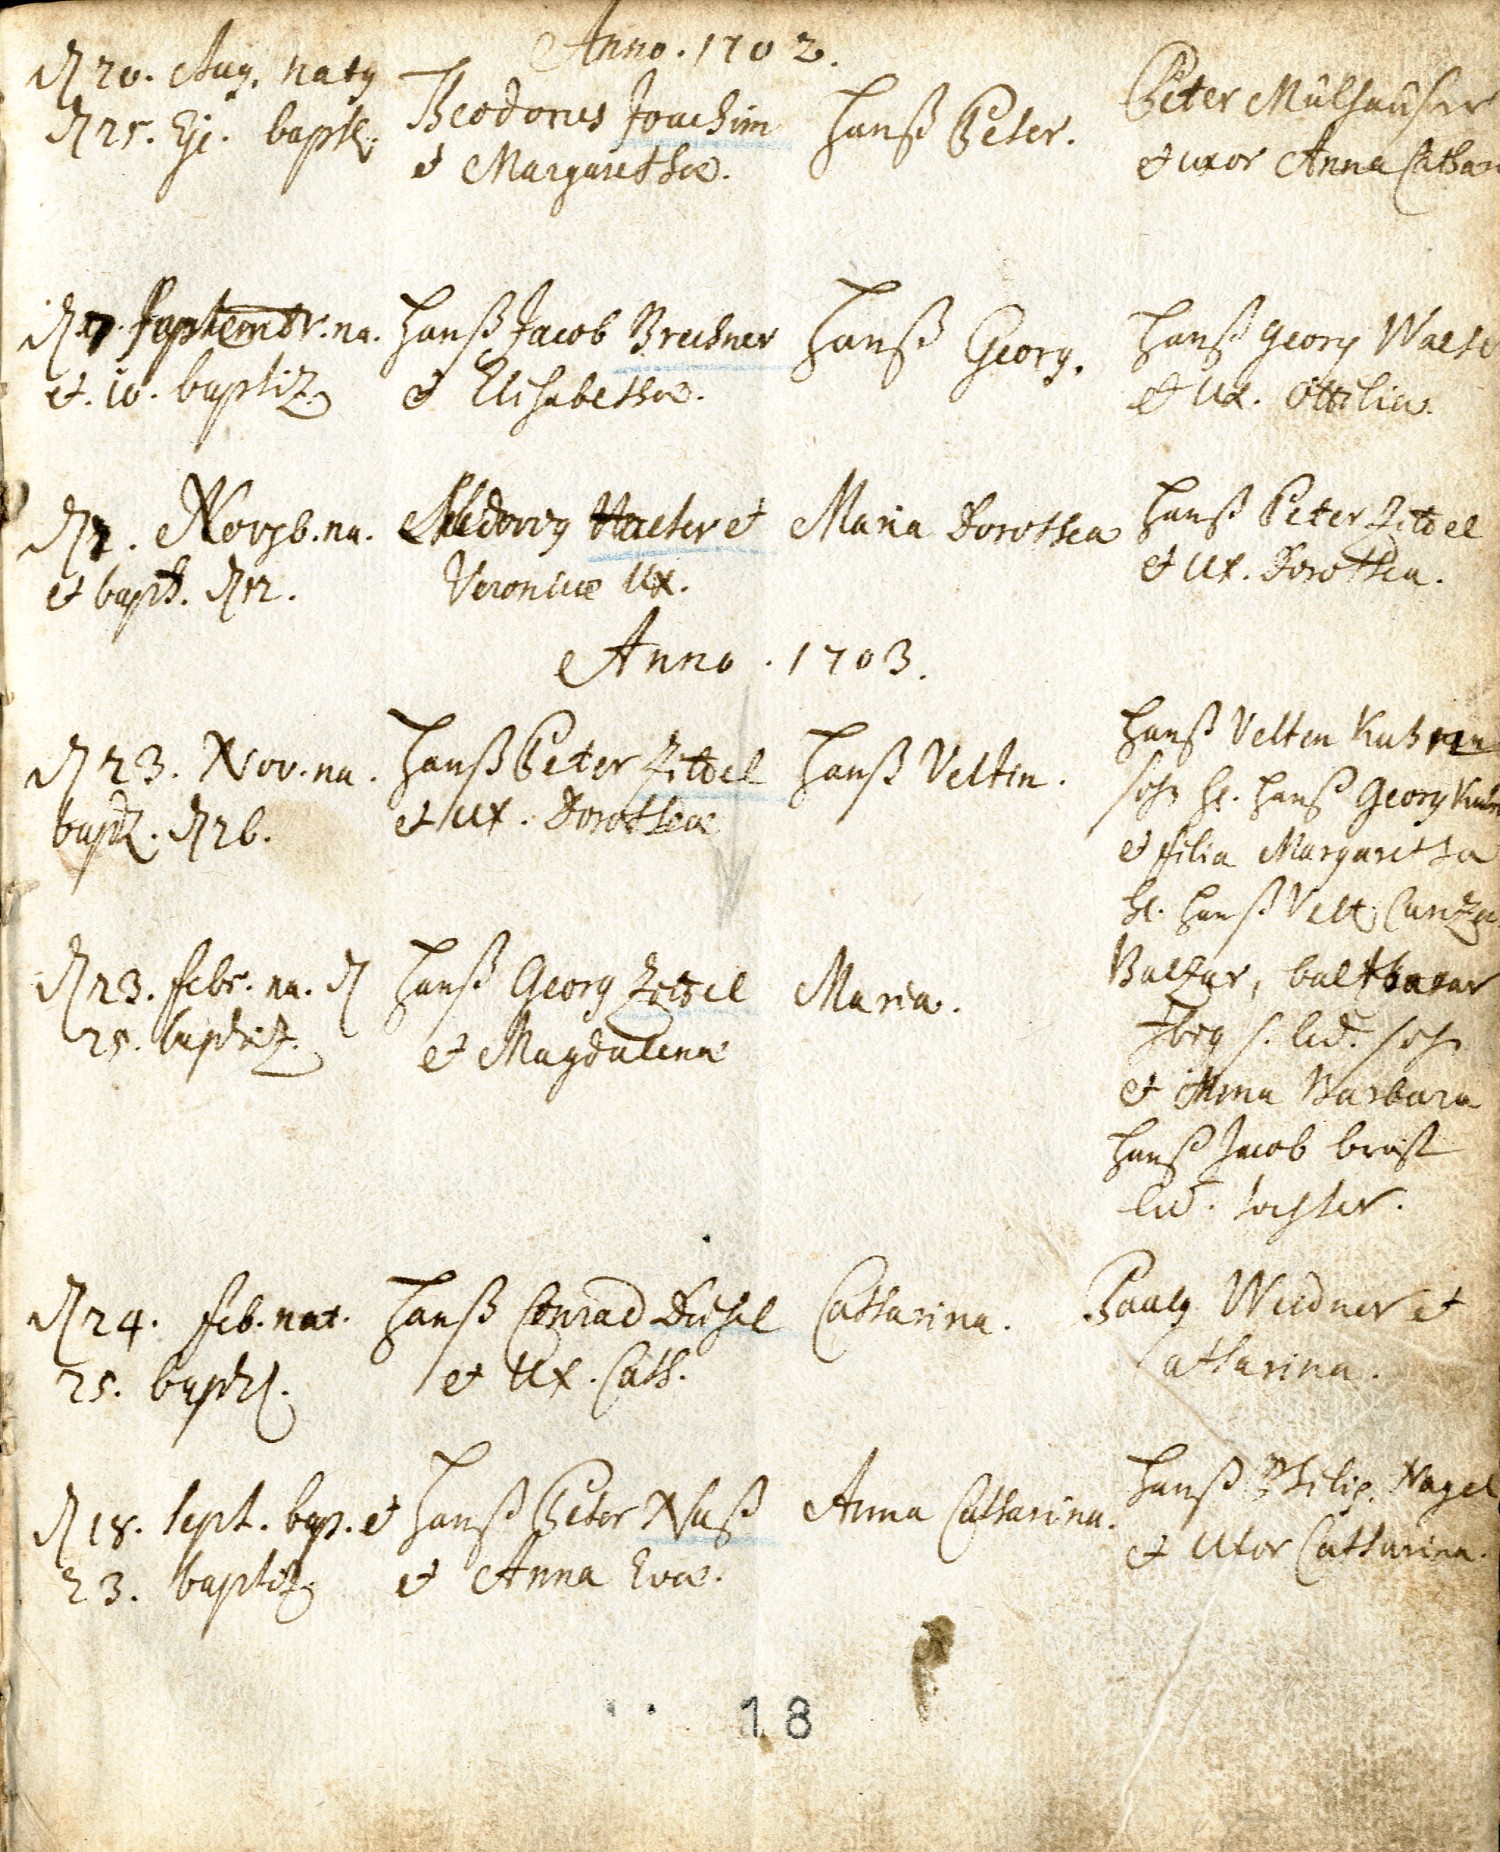 Anno. 1702.
d 20. Aug. naty
d 25. Ej. baptz.
Theodorus Joachim
et Margarethæ.
Hanß Peter.
Peter Mülhaüser
et uxor Anna Cathar
d 7. Septembr. na.
et. 10. baptiz.
Hanß Jacob Brechner
et Elisabethæ.
Hanß Georg.
Hanß Georg Walte
et Ux. Ottilia.
d 7. Novbr. na.
et bapt. d 12.
Ludovig Walter et
Veronicæ Ux.
Maria Dorothea
Hanß Peter Zittel
et Ux. Dorothea.
Anno. 1703.
d 23. Nov. na.
baptz. d 26.
Hanß Peter Zittel
et Ux. Dorotheæ
Hanß Velten.
Hanß Velten
sohn H. Hanß Georg
et filia Margaretha
H. Hanß Velt.
d 23. febr. na. d
25. baptiz.
Hanß Georg Zittel
et Magdalenæ
Maria.
Balzar, balthasar
led. sohn
et Anna Barbara
Hanß Jacob brost
led. tochter.
d 24. feb. nat.
25. baptz.
Hanß Conrad Diehel
et Ux. Cath.
Catharina.
Pauly Weidner et
Catharina.
d 18. sept. bap. et
23. baptiz.
Hanß Peter Naß
et Anna Evæ.
Anna Catharina.
Hanß Philip. Nagel
et Uxor Catharina.
18